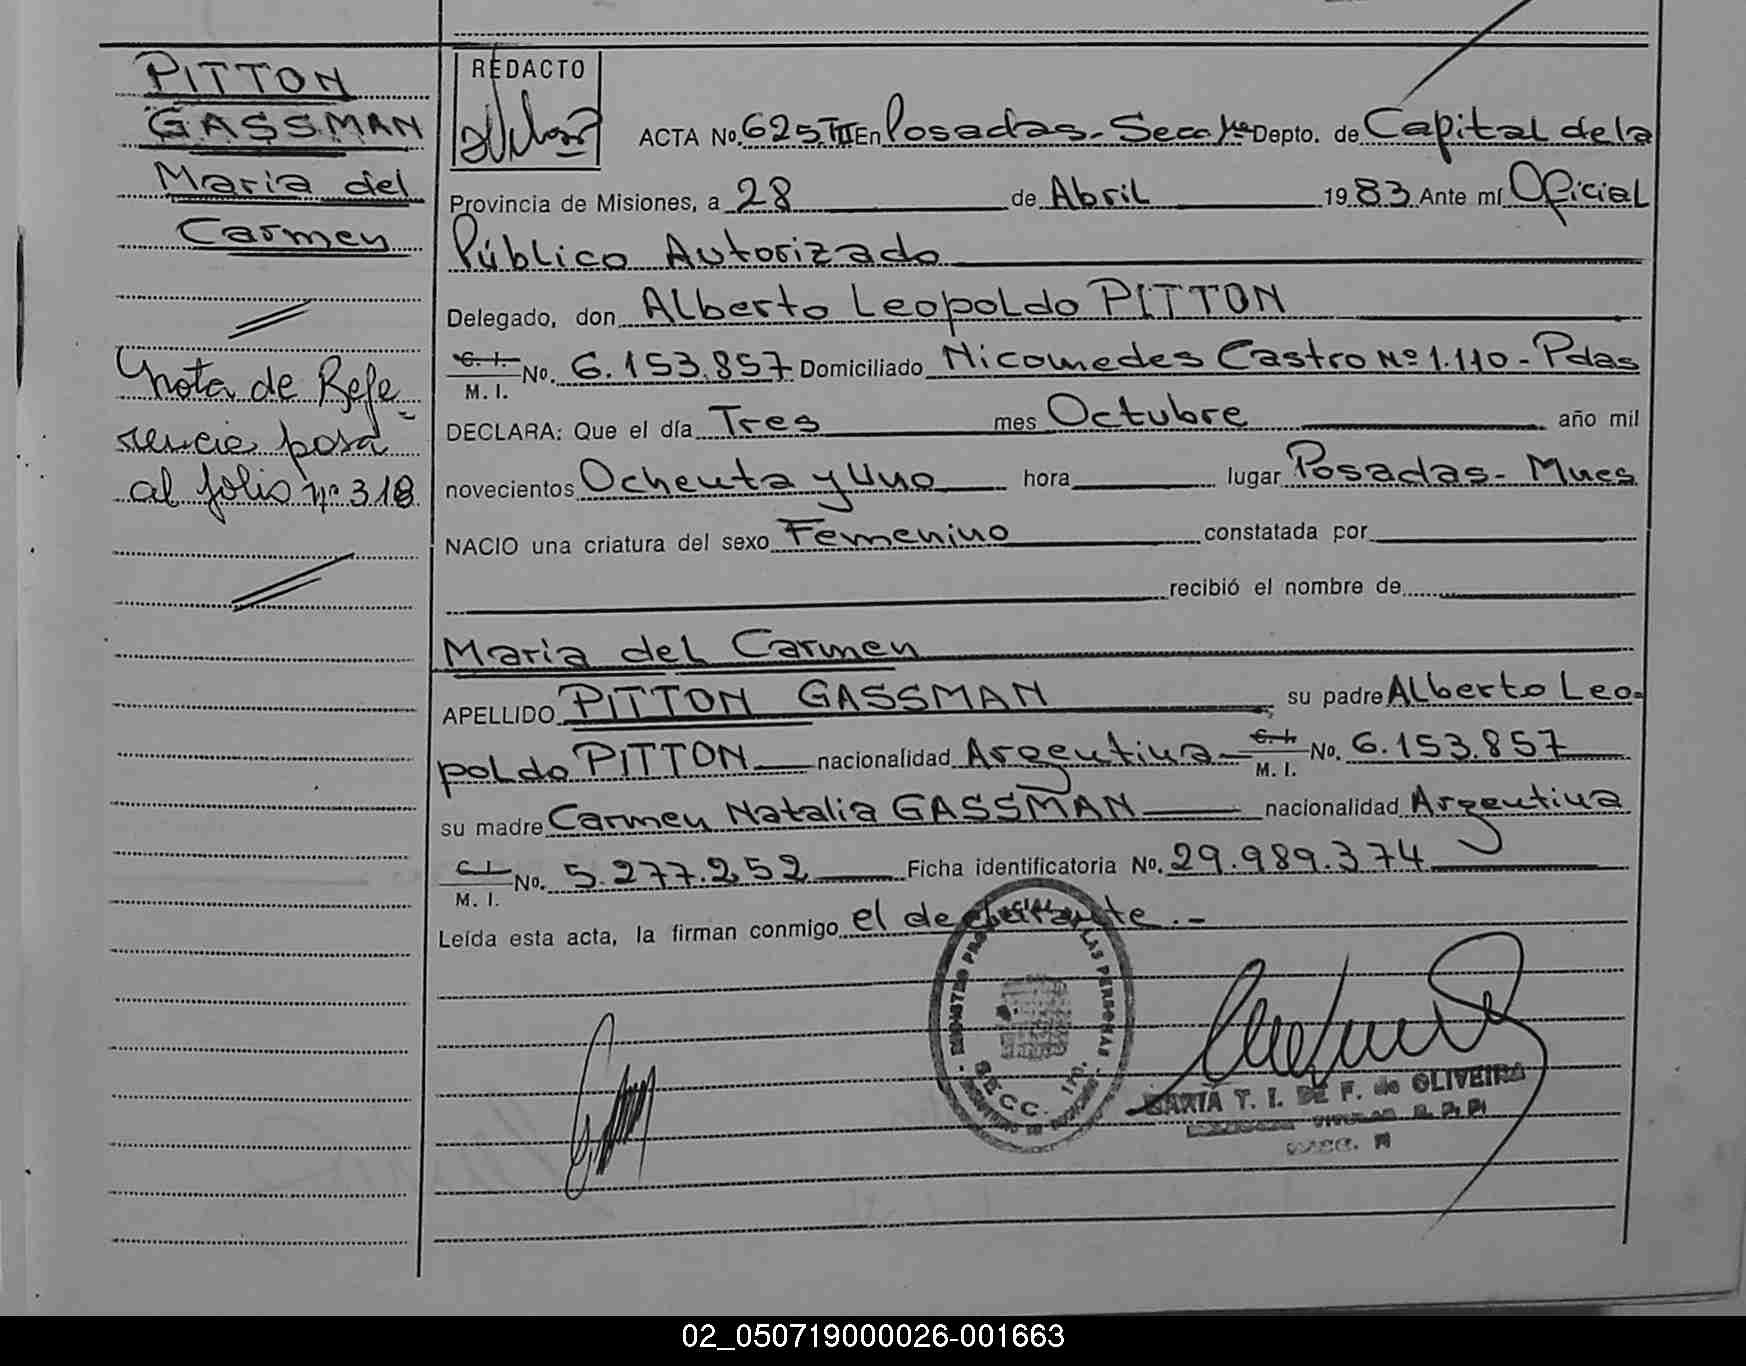 PITTON
GASSMAN
Maria del
Carmen
Nota de Refe-
rencia pasa
al folio nº 318
REDACTO
ACTA No. 625 TIII En Posadas - Secc 1ª Depto. de Capital de la
Provincia de Misiones, a 28 de Abril 1983 Ante mí Oficial
Público Autorizado
Delegado, don Alberto Leopoldo PITTON
C. I.
M. I. No. 6.153.857 Domiciliado Nicomedes Castro Nº 1.110 - Pdas
DECLARA: Que el día Tres mes Octubre año mil
novecientos Ochenta y Uno hora lugar Posadas - Mnes
NACIO una criatura del sexo Femenino constatada por
recibió el nombre de
Maria del Carmen
APELLIDO PITTON GASSMAN su padre Alberto Leo-
poldo PITTON nacionalidad Argentina C. I. M. I. No. 6.153.857
su madre Carmen Natalia GASSMAN nacionalidad Argentina
C. I.
M. I. No. 5.277.252 Ficha identificatoria No. 29.989.374
Leída esta acta, la firman conmigo el declarante.-
REGISTRO LAS PERSONAS
SECC. 1ra.
MARIA T. I. DE F. de OLIVEIRA
02_050719000026-001663